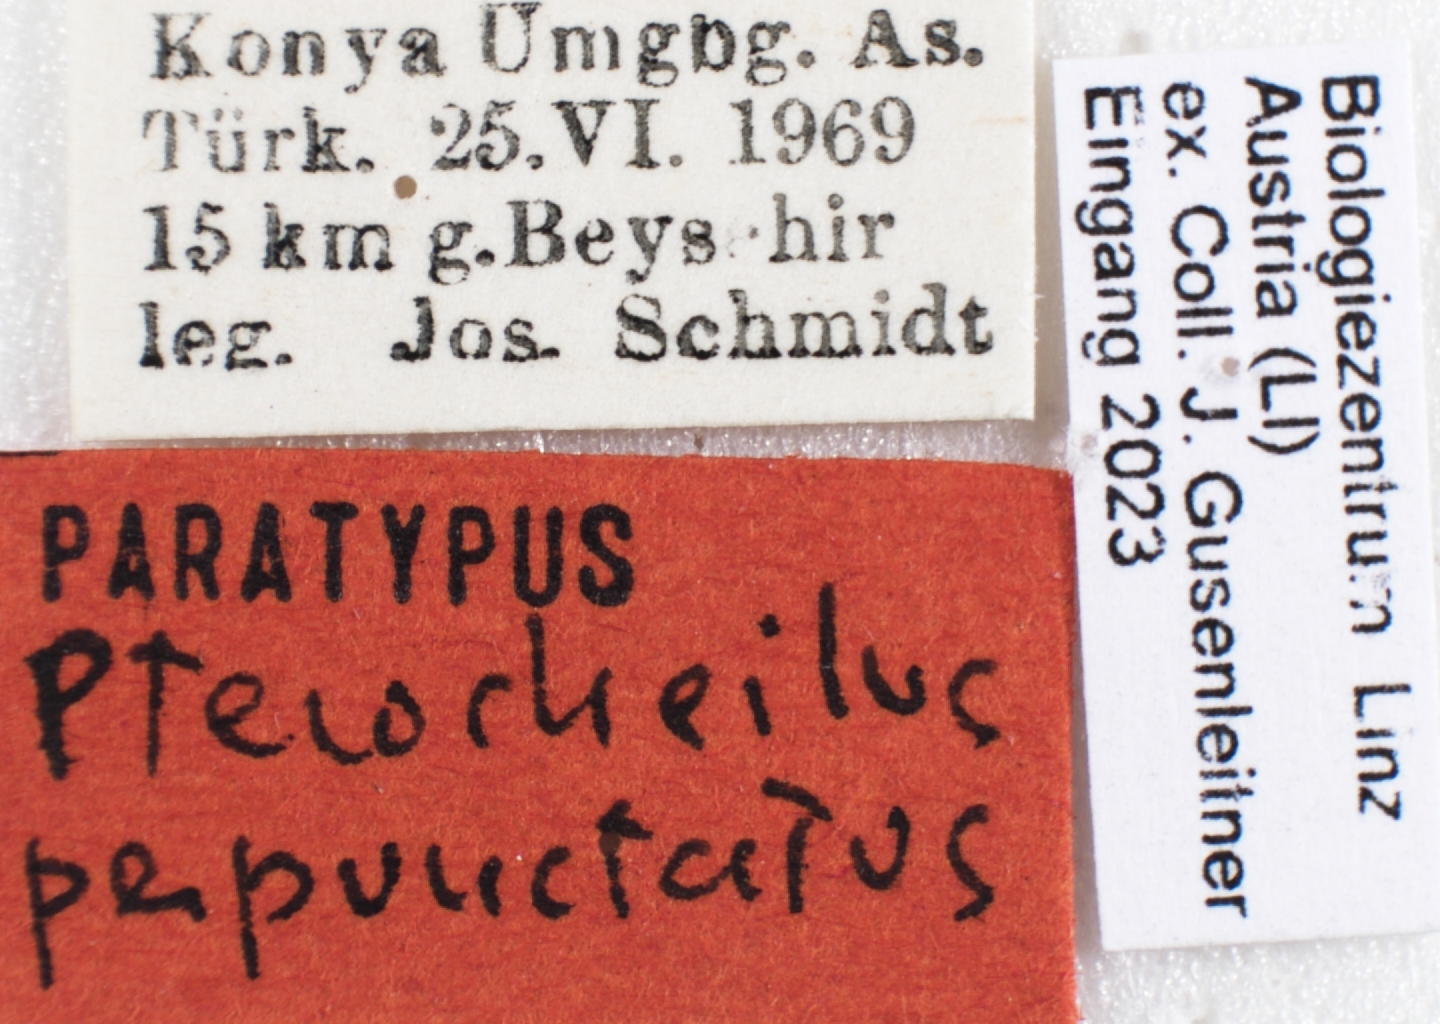 Konya Umgbg. As.
Türk. 25.VI. 1969
15 km g. Beys hir
leg. Jos. Schmidt
PARATYPUS
Pterocheilus
perpunctatus
Biologiezentrum Linz
Austria (LI)
ex. Coll. J. Gusenleitner
Eingang 2023